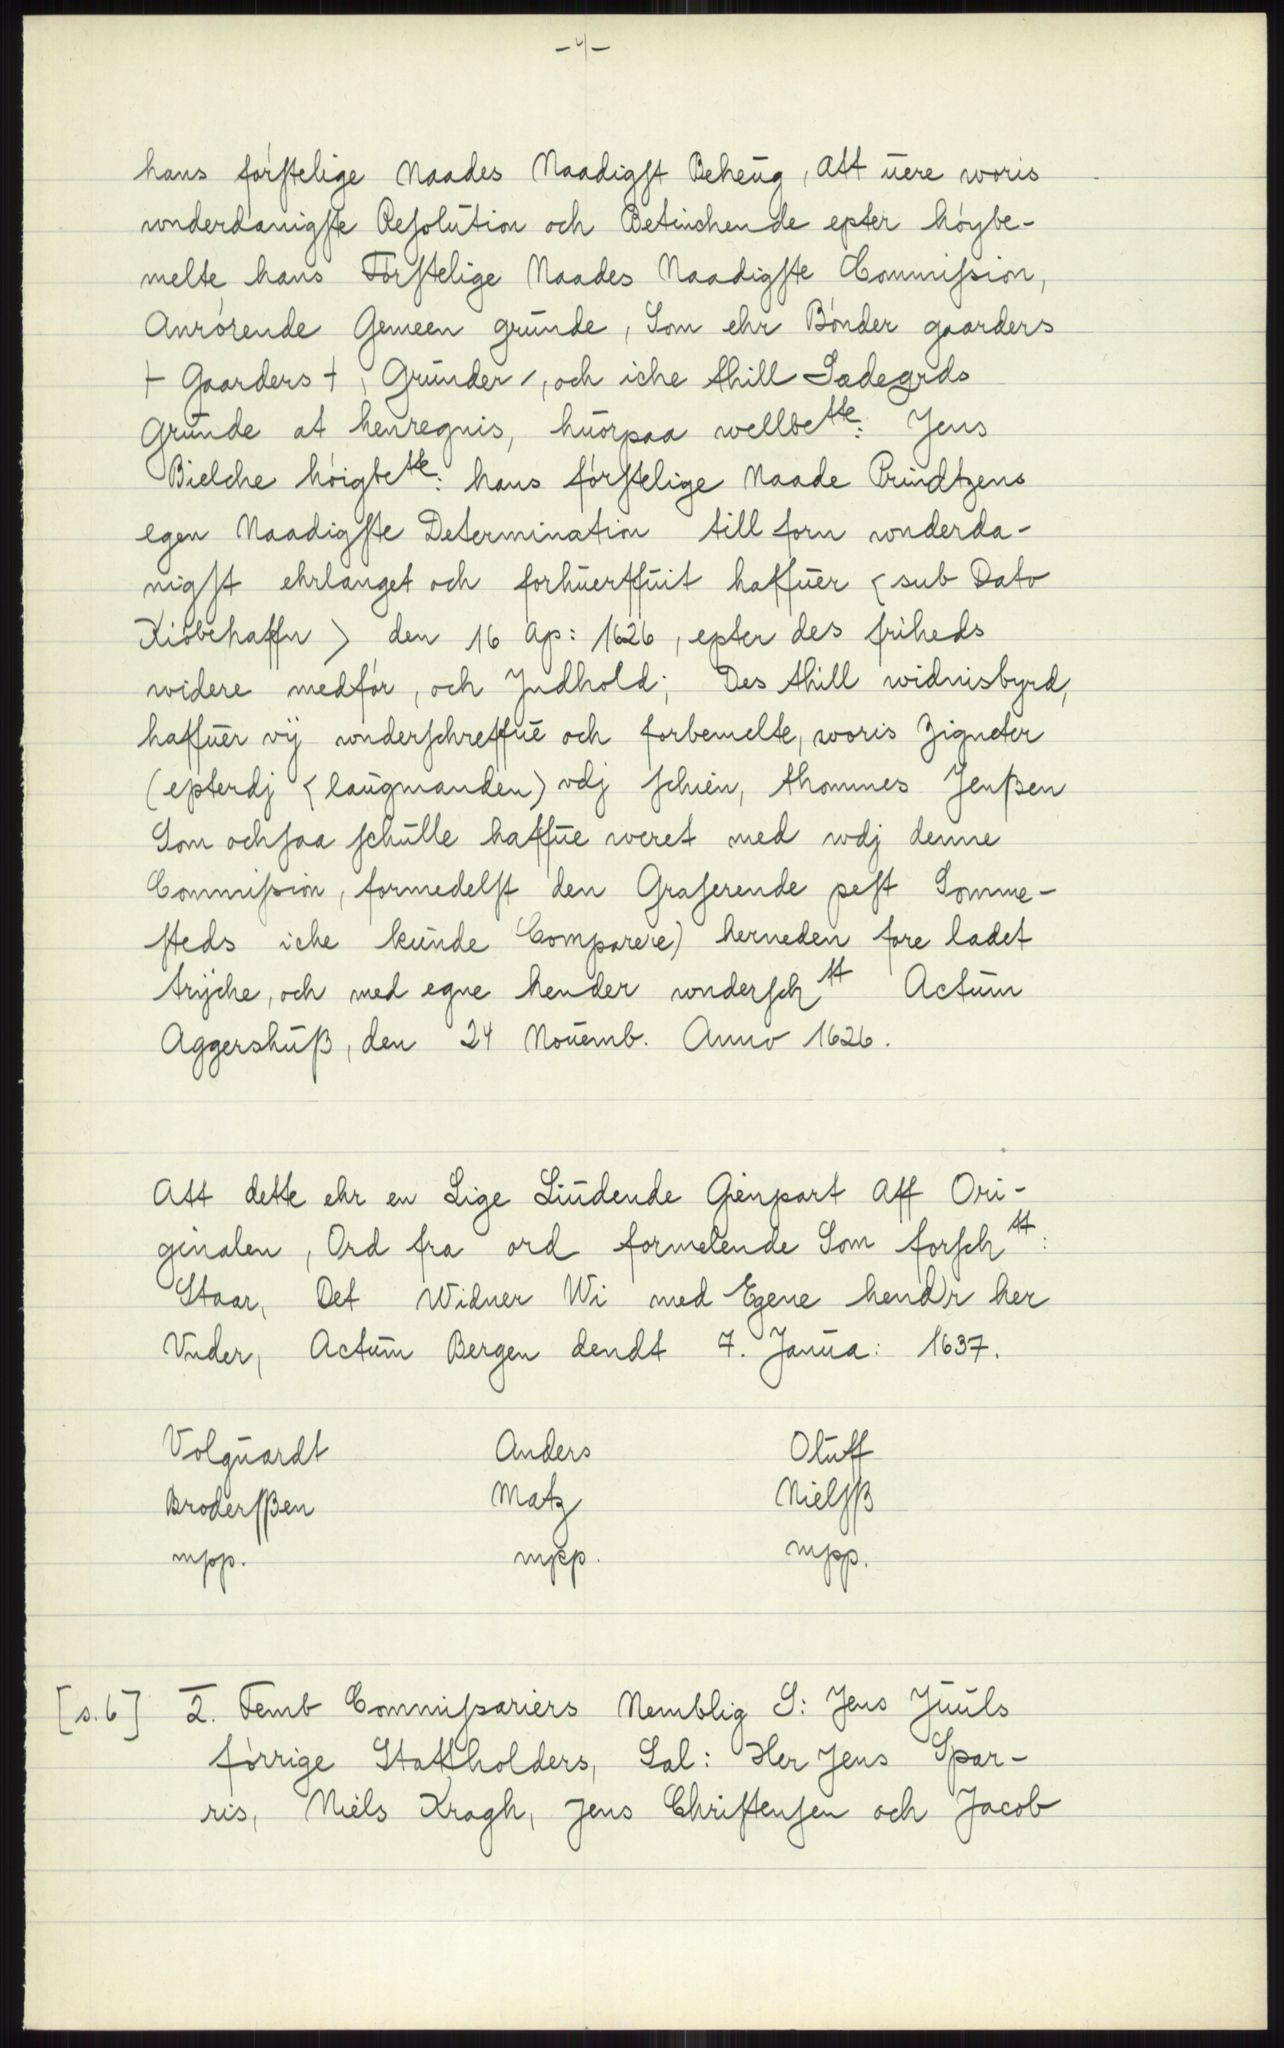 -4-
hans førstelige Naades Naadigst Beheug, att uere woris
wnderdanigste Resolution och Betinchende epter høybe-
melte hans Førstelige Naades Naadigste Commission,
Anrørende Gemeen grunde, Som ehr Bønder gaarders
+ Gaarders +, Grunder /, och iche thill Sædegrds
Grunde at henregnis, huorpaa wellbette: Jens
Bielche høigbtte: hans førstelige Naade Prindtzens
egen Naadigste Determination till forn wnderda-
nigst ehrlanget och forhuerffuit haffuer < sub Dato
Kiøbehaffn > den 16 Ap: 1626, epter des friheds
widere medfør, och Jndhold; Des thill widnisbyrd,
haffuer vij wnderschreffue och forbemelte, woris Zigneter
(epterdj < laugmanden > vdj schien, thommes Jenßen
Som ochsaa schulle haffue weret med wdj denne
Commission, formedelst den Graserende pest Somme-
steds iche kunde Comparere) herneden fore ladet
trijche, och med egne hender wndersch tt Actum
Aggershuß, den 24 Nouemb. Anno 1626.
Att dette ehr en Lige Liudende Gienpart Aff Ori-
ginalen, Ord fra ord formelende Som forsch tt:
Staar, Det Widner Wi med Egene hend'r her
Vnder, Actum Bergen dendt 7. Janua: 1637.
Volquardt Anders Oluff
Broderßen Matz Nielß
mpp. mpp. mpp.
[s.6] 2. Femb Commissariers Nemblig S: Jens Juuls
førrige Stattholders, Sal: Her Jens Spar-
ris, Niels Kragh, Jens Christensen och Jacob